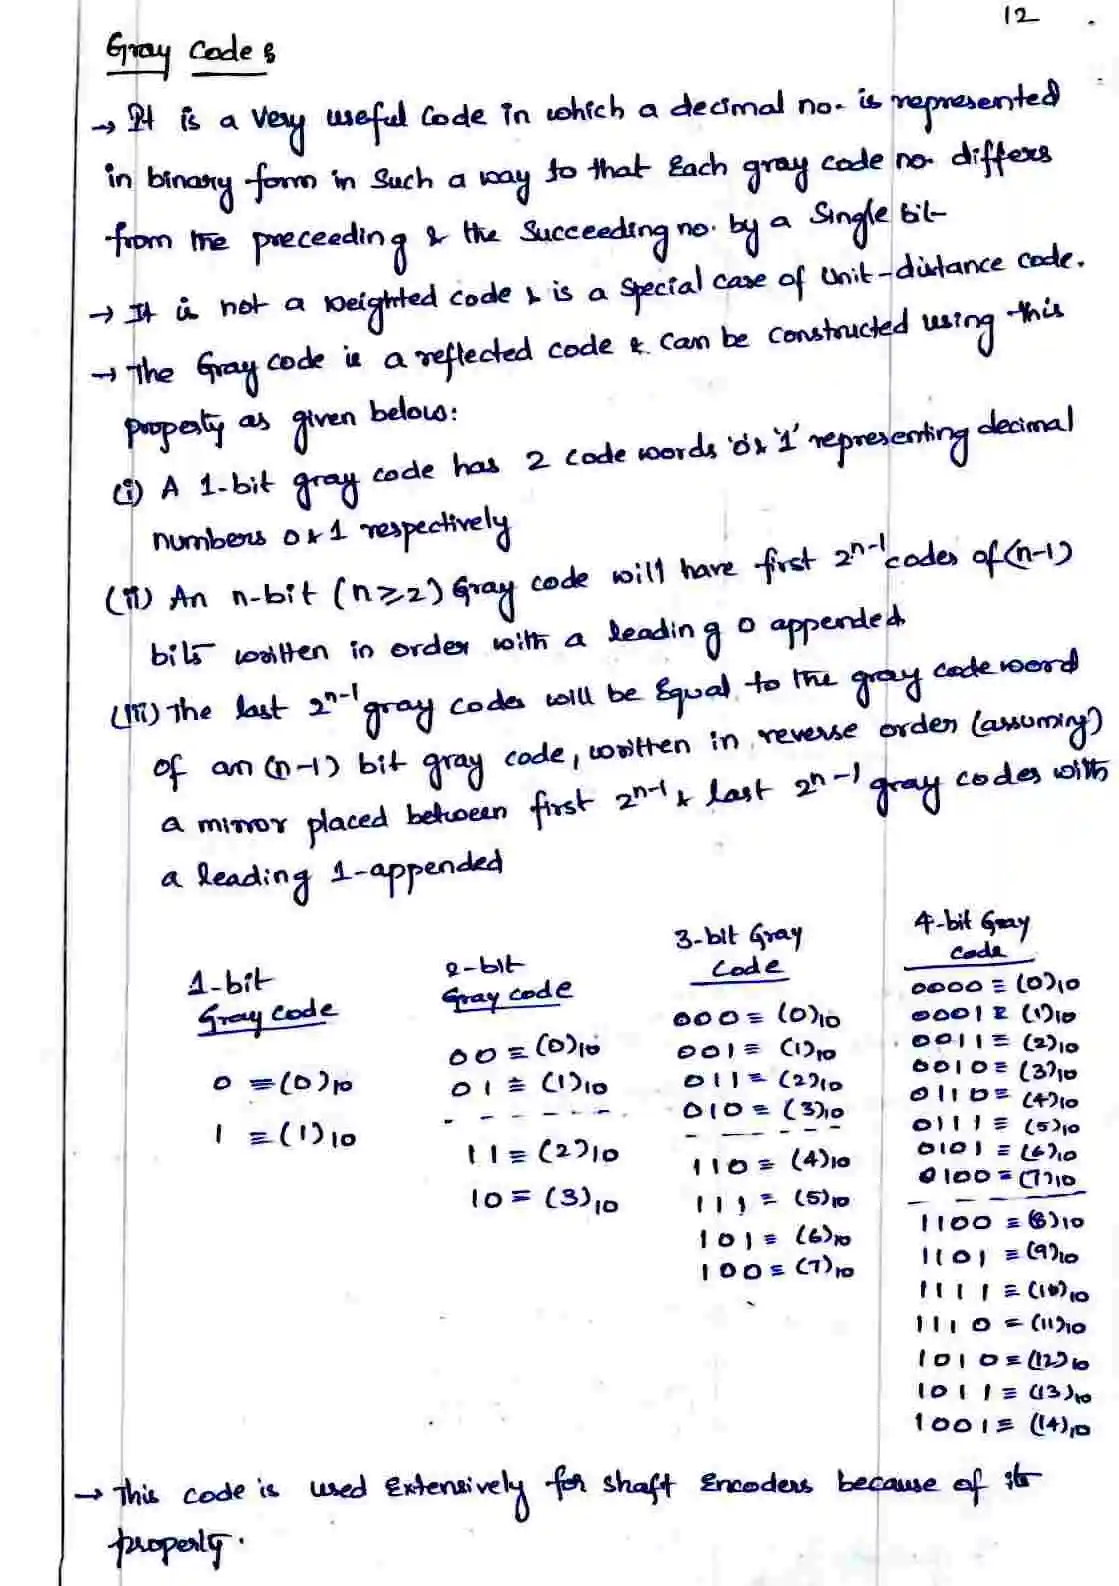 12
Gray Code :
→ It is a very useful Code in which a decimal no. is represented
in binary form in Such a way to that Each gray code no. differs
from the preceeding & the Succeeding no. by a Single bit
→ It is not a weighted code & is a Special case of Unit-distance code.
→ The Gray code is a reflected code & Can be constructed using this
property as given below:
(i) A 1-bit gray code has 2 code words '0' & '1' representing decimal
numbers 0 & 1 respectively
(ii) An n-bit (n≥2) Gray code will have first 2ⁿ⁻¹ codes of (n-1)
bits written in order with a leading 0 appended
(iii) The last 2ⁿ⁻¹ gray codes will be Equal to the gray code word
of an (n-1) bit gray code, written in reverse order (assuming)
a mirror placed between first 2ⁿ⁻¹ & last 2ⁿ⁻¹ gray codes with
a leading 1-appended
1-bit
Gray code
0 ≡ (0)10
1 ≡ (1)10
2-bit
Gray code
00 ≡ (0)10
01 ≡ (1)10
11 ≡ (2)10
10 ≡ (3)10
3-bit Gray
Code
000 ≡ (0)10
001 ≡ (1)10
011 ≡ (2)10
010 ≡ (3)10
110 ≡ (4)10
111 ≡ (5)10
101 ≡ (6)10
100 ≡ (7)10
4-bit Gray
Code
0000 ≡ (0)10
0001 ≡ (1)10
0011 ≡ (2)10
0010 ≡ (3)10
0110 ≡ (4)10
0111 ≡ (5)10
0101 ≡ (6)10
0100 = (7)10
1100 ≡ (8)10
1101 ≡ (9)10
1111 ≡ (10)10
1110 = (11)10
1010 ≡ (12)10
1011 ≡ (13)10
1001 ≡ (14)10
→ This code is used Extensively for shaft Encoders because of its
property.